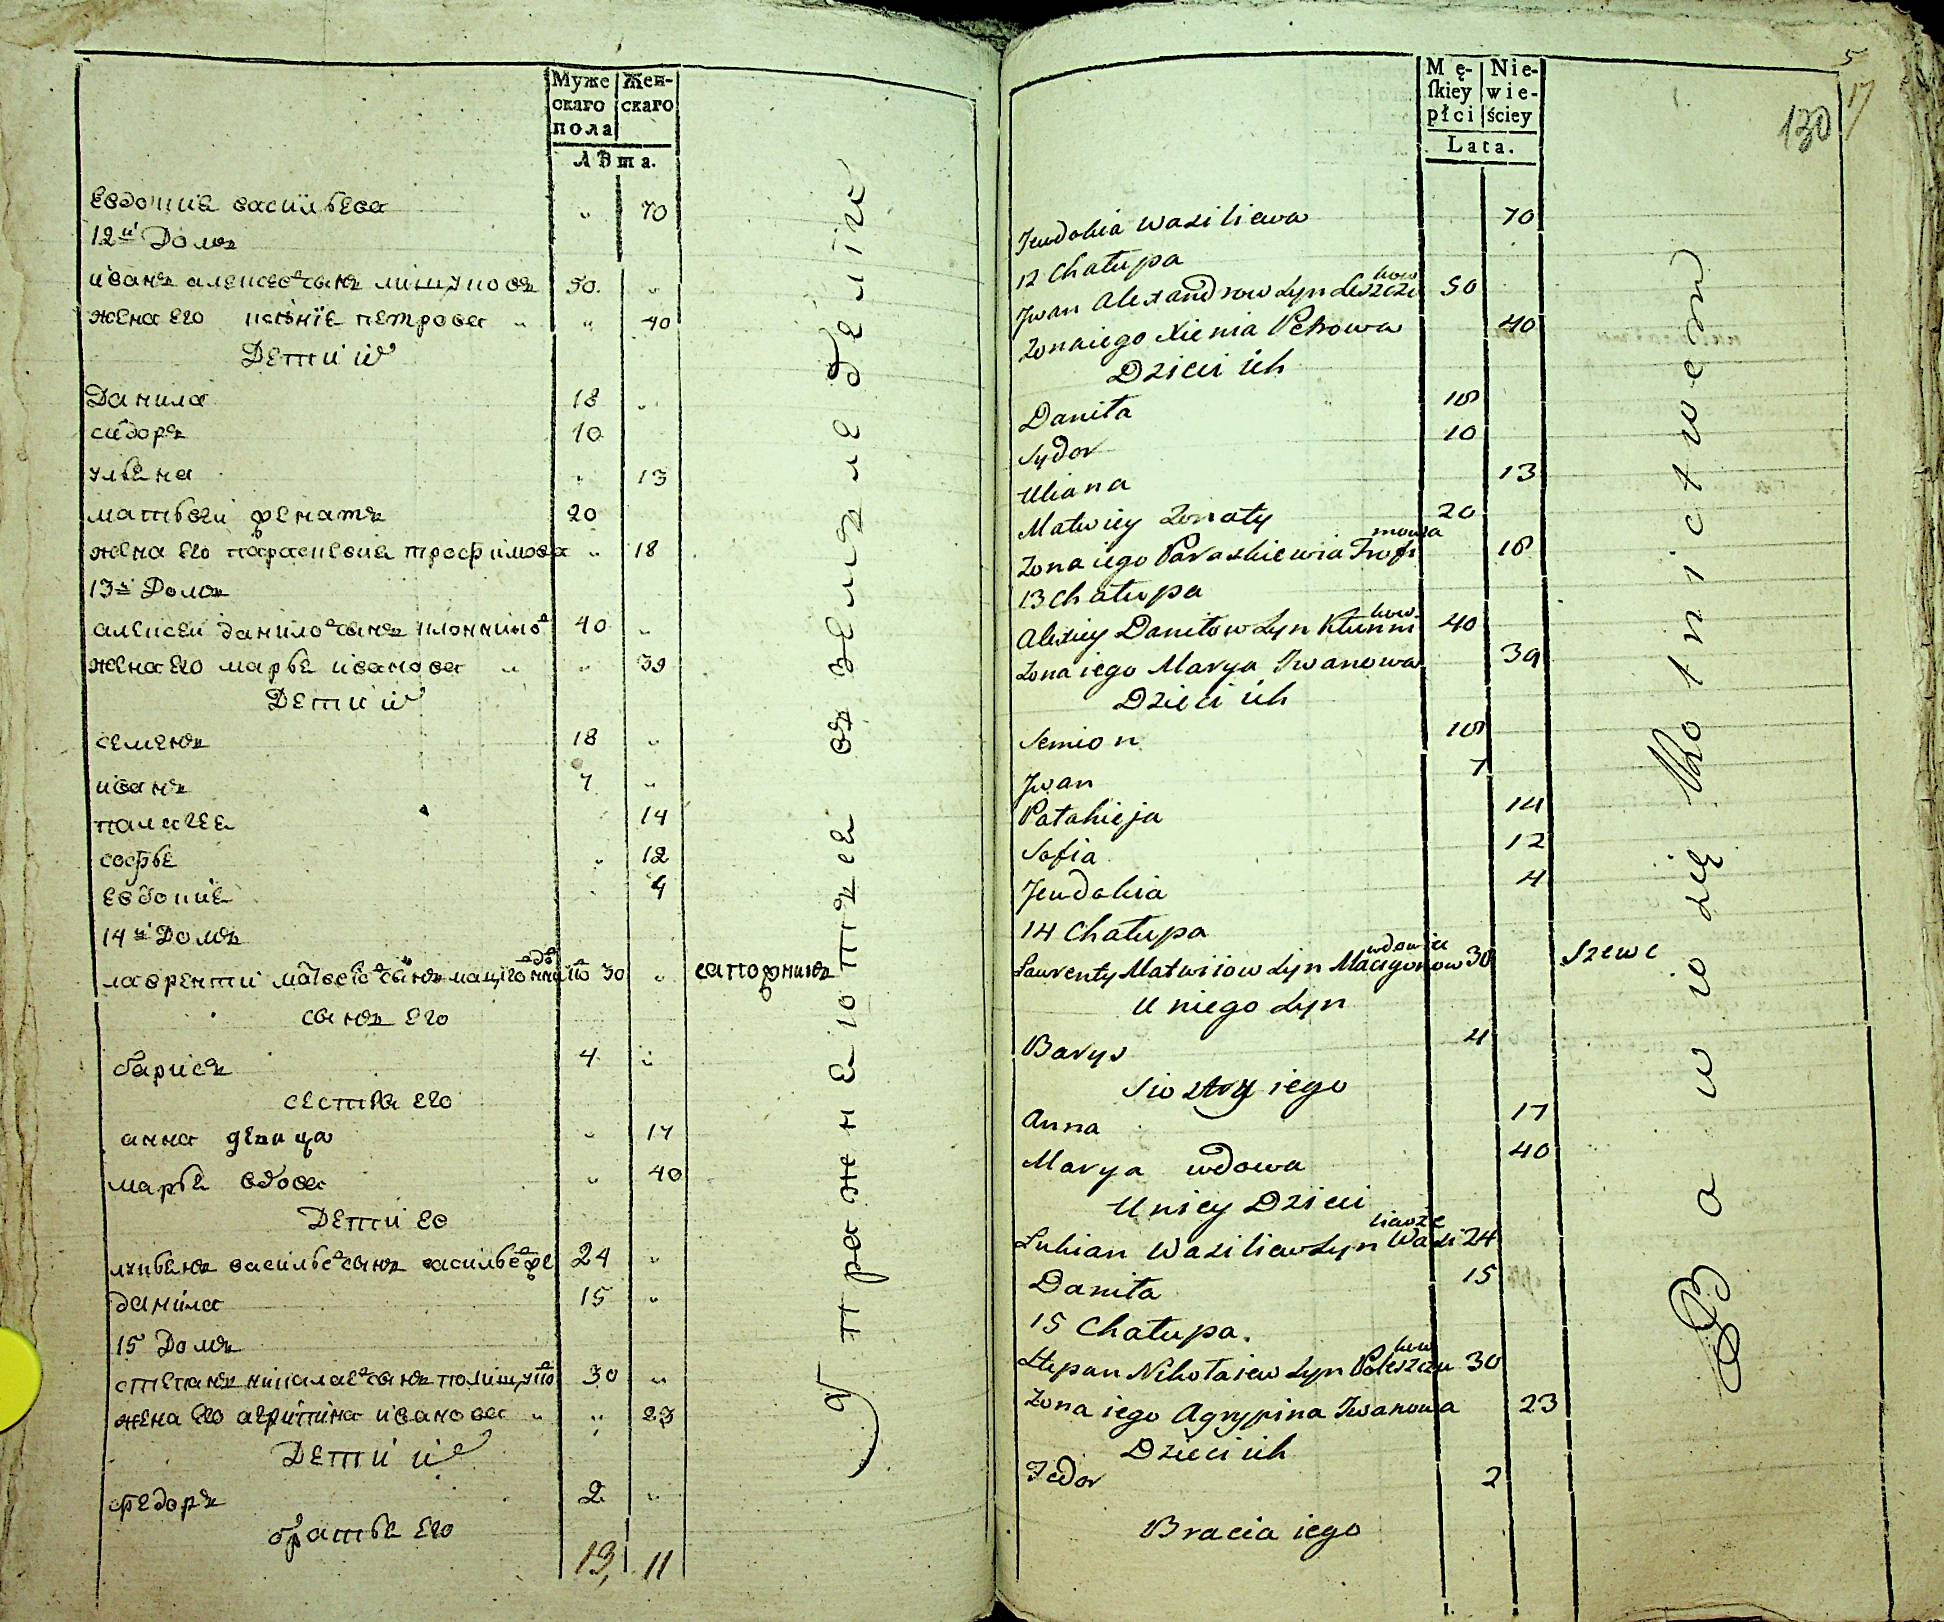 Муже Жен-
скаго скаго
пола
Лѣта.
евдокиѣ васильева " 70
12й Домъ
иванъ алексеевъ сынъ лишчуковъ 50 "
жена его ксѣниѣ петрова " 40
Дети их
Данила 18 "
сидоръ 10
ульѣна " 13
матвей зѣнать 20
жена его параскевиѣ трофимова " 18
13й Домъ
алексей даниловъ сынъ 40 "
жена его марьѣ иванова " 39
Дети их
семенъ 18 "
иванъ 7 "
палагеѣ 14
софьѣ " 12
евдокиѣ 4
14й Домъ
лаврентий матвеевъ сынъ 30 " сапожникъ
сынъ его
барисъ 4 "
сестра его
анна девица " 17
марьѣ вдова " 40
Дети ее
лукьѣнъ васильевъ сынъ 24 "
данила 15 "
15 Домъ
степанъ никалаевъ сынъ полишчуков 30 "
жена его агрипина иванова " 23
Дети их
федоръ 2 "
братьѣ его
13, 11
упражнѣютцѣ въ земледелие
Mę- Nie-
ſkiey wie-
płci ściey
Lata.
5
17
130
Jeudokia Wasiliewa 70
12 Chałupa
Jwan Alexandrow Syn Leszczukow 50
Zona iego Xienia Petrowa 40
Dzieci ich
Daniła 18
Sydor 10
Uliana 13
Matwiey Zonaty 20
Zona iego Paraskiewia Trofimowa 18
13 Chałupa
Alexiey Daniłow Syn Kłunnikow 40
Zona iego Marya Jwanowa 39
Dzieci ich
Semion 18
Jwan 7
Pałahieja 14
Sofia 12
Jeudokia 4
14 Chałupa
Laurenty Matwiiow Syn Macygonow wdowiec 30 Szewc
U niego Syn
Barys 4
Siostry iego
Anna 17
Marya wdowa 40
U niey Dzieci
Łukian Wasiliew Syn Wasi 24
Daniła 15
15 Chałupa.
Stepan Nikołaiew Syn Poleszczukow 30
Zona iego Agrypina Jwanowa 23
Dzieci ich
Fedor 2
Bracia iego
Bawią się Rolnictwem